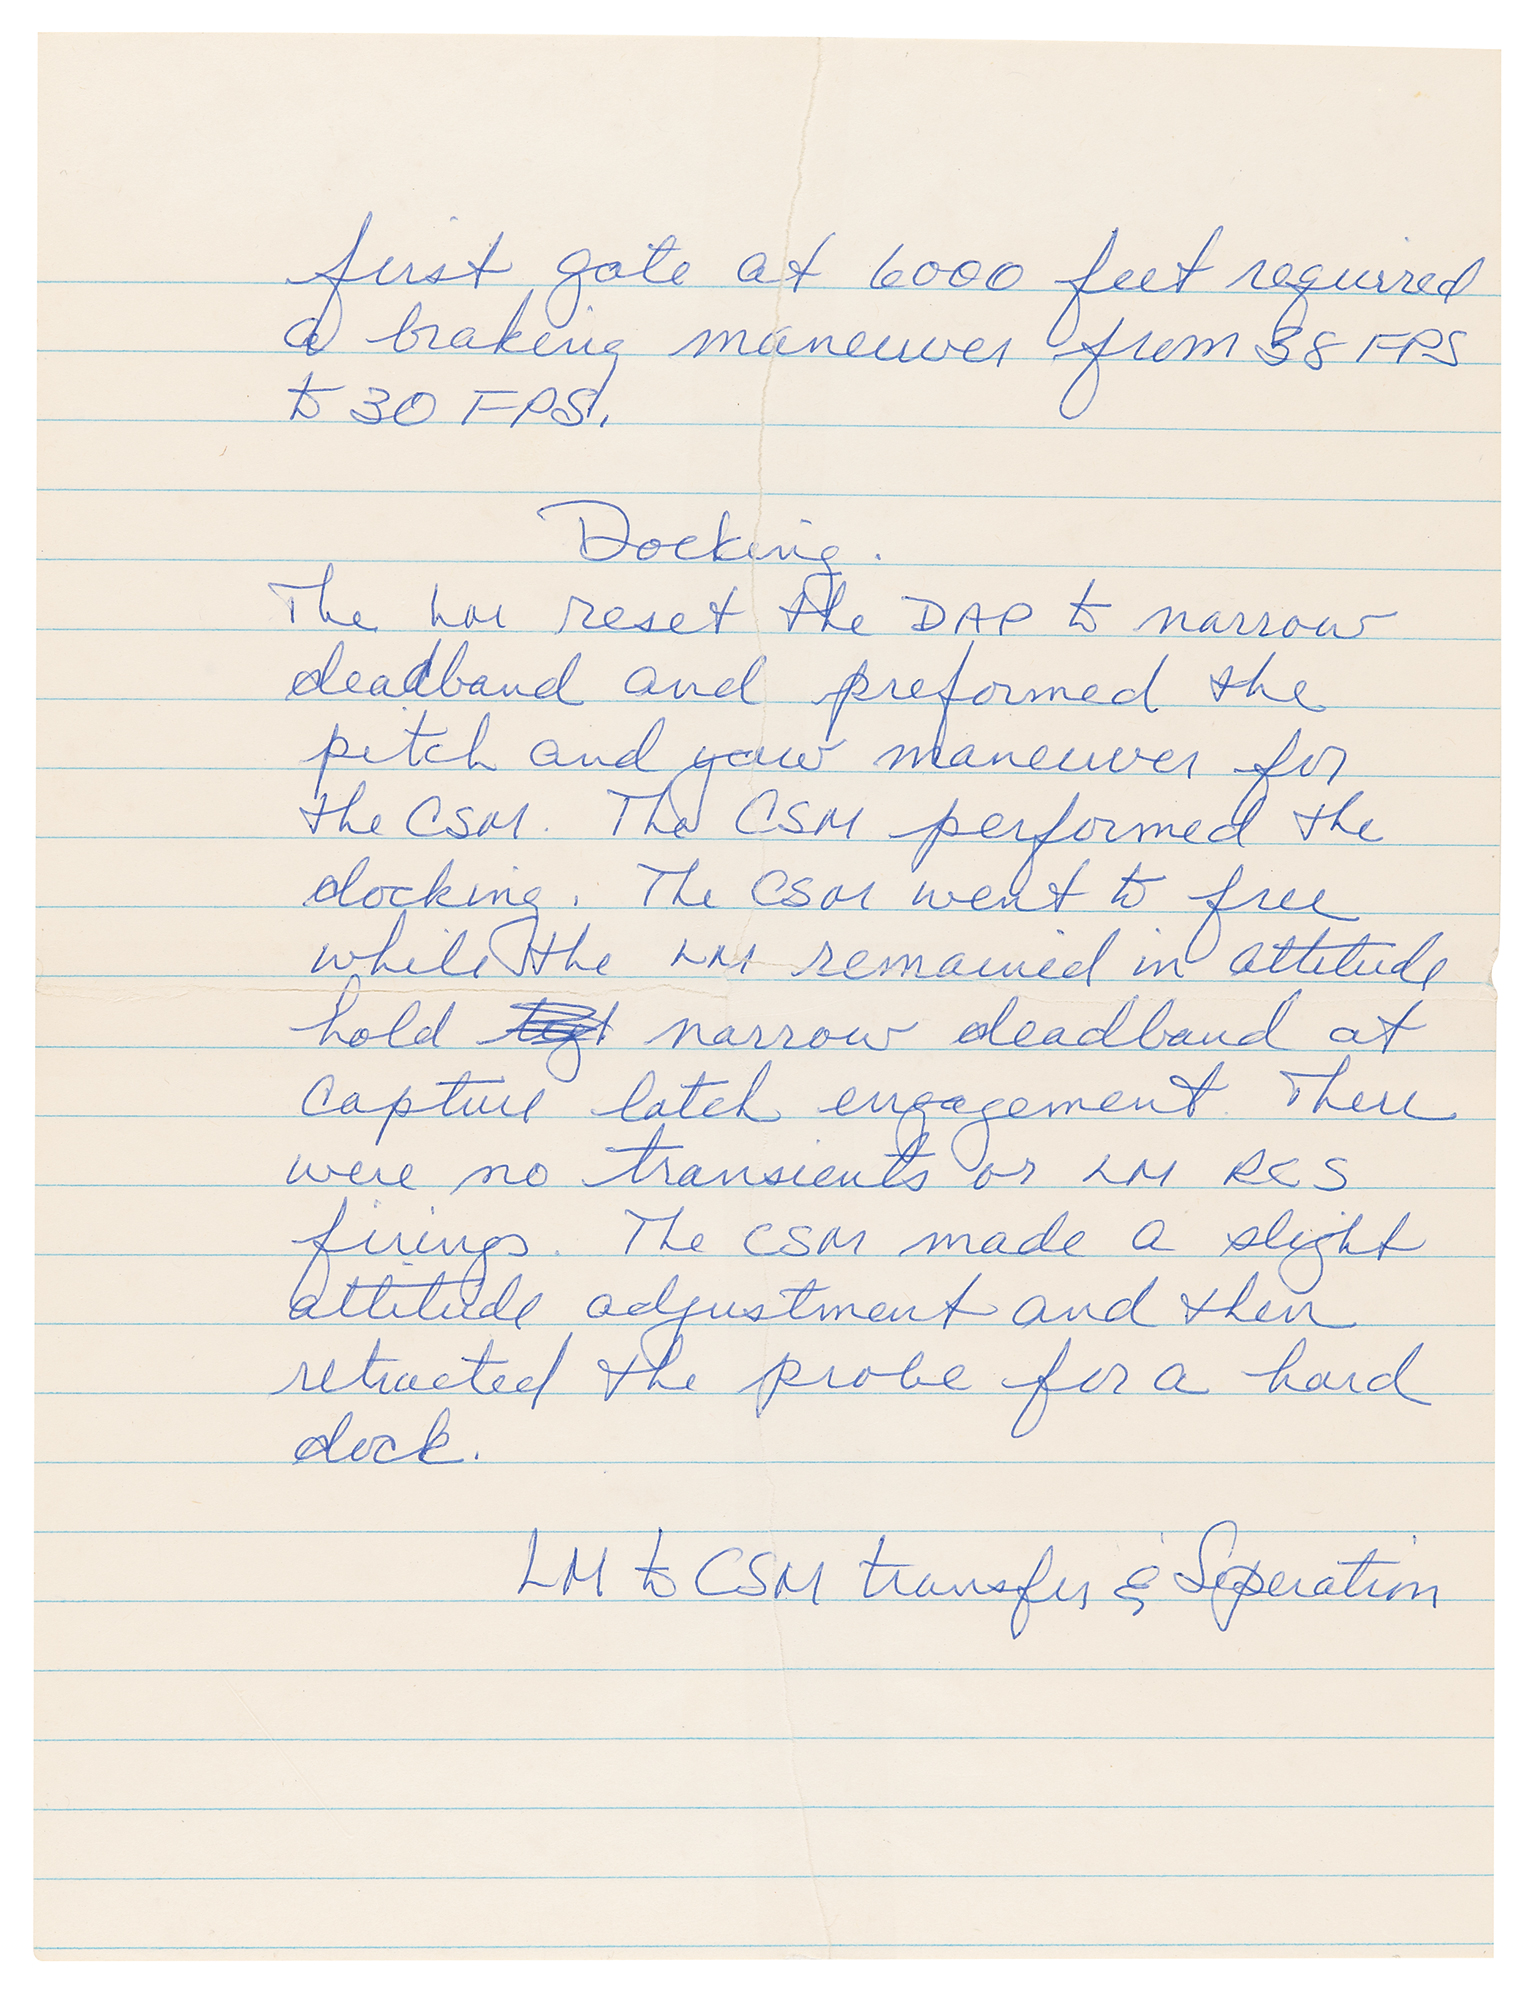 first gate at 6000 feet required
a braking maneuver from 38 FPS
to 30 FPS.
Docking.
The LM reset the DAP to narrow
deadband and preformed the
pitch and yaw maneuver for
the CSM. The CSM performed the
docking. The CSM went to free
while the LM remained in attitude
hold narrow deadband at
capture latch engagement. There
were no transients or LM RCS
firings. The CSM made a slight
attitude adjustment and then
retracted the probe for a hard
dock.
LM to CSM transfer & Seperation